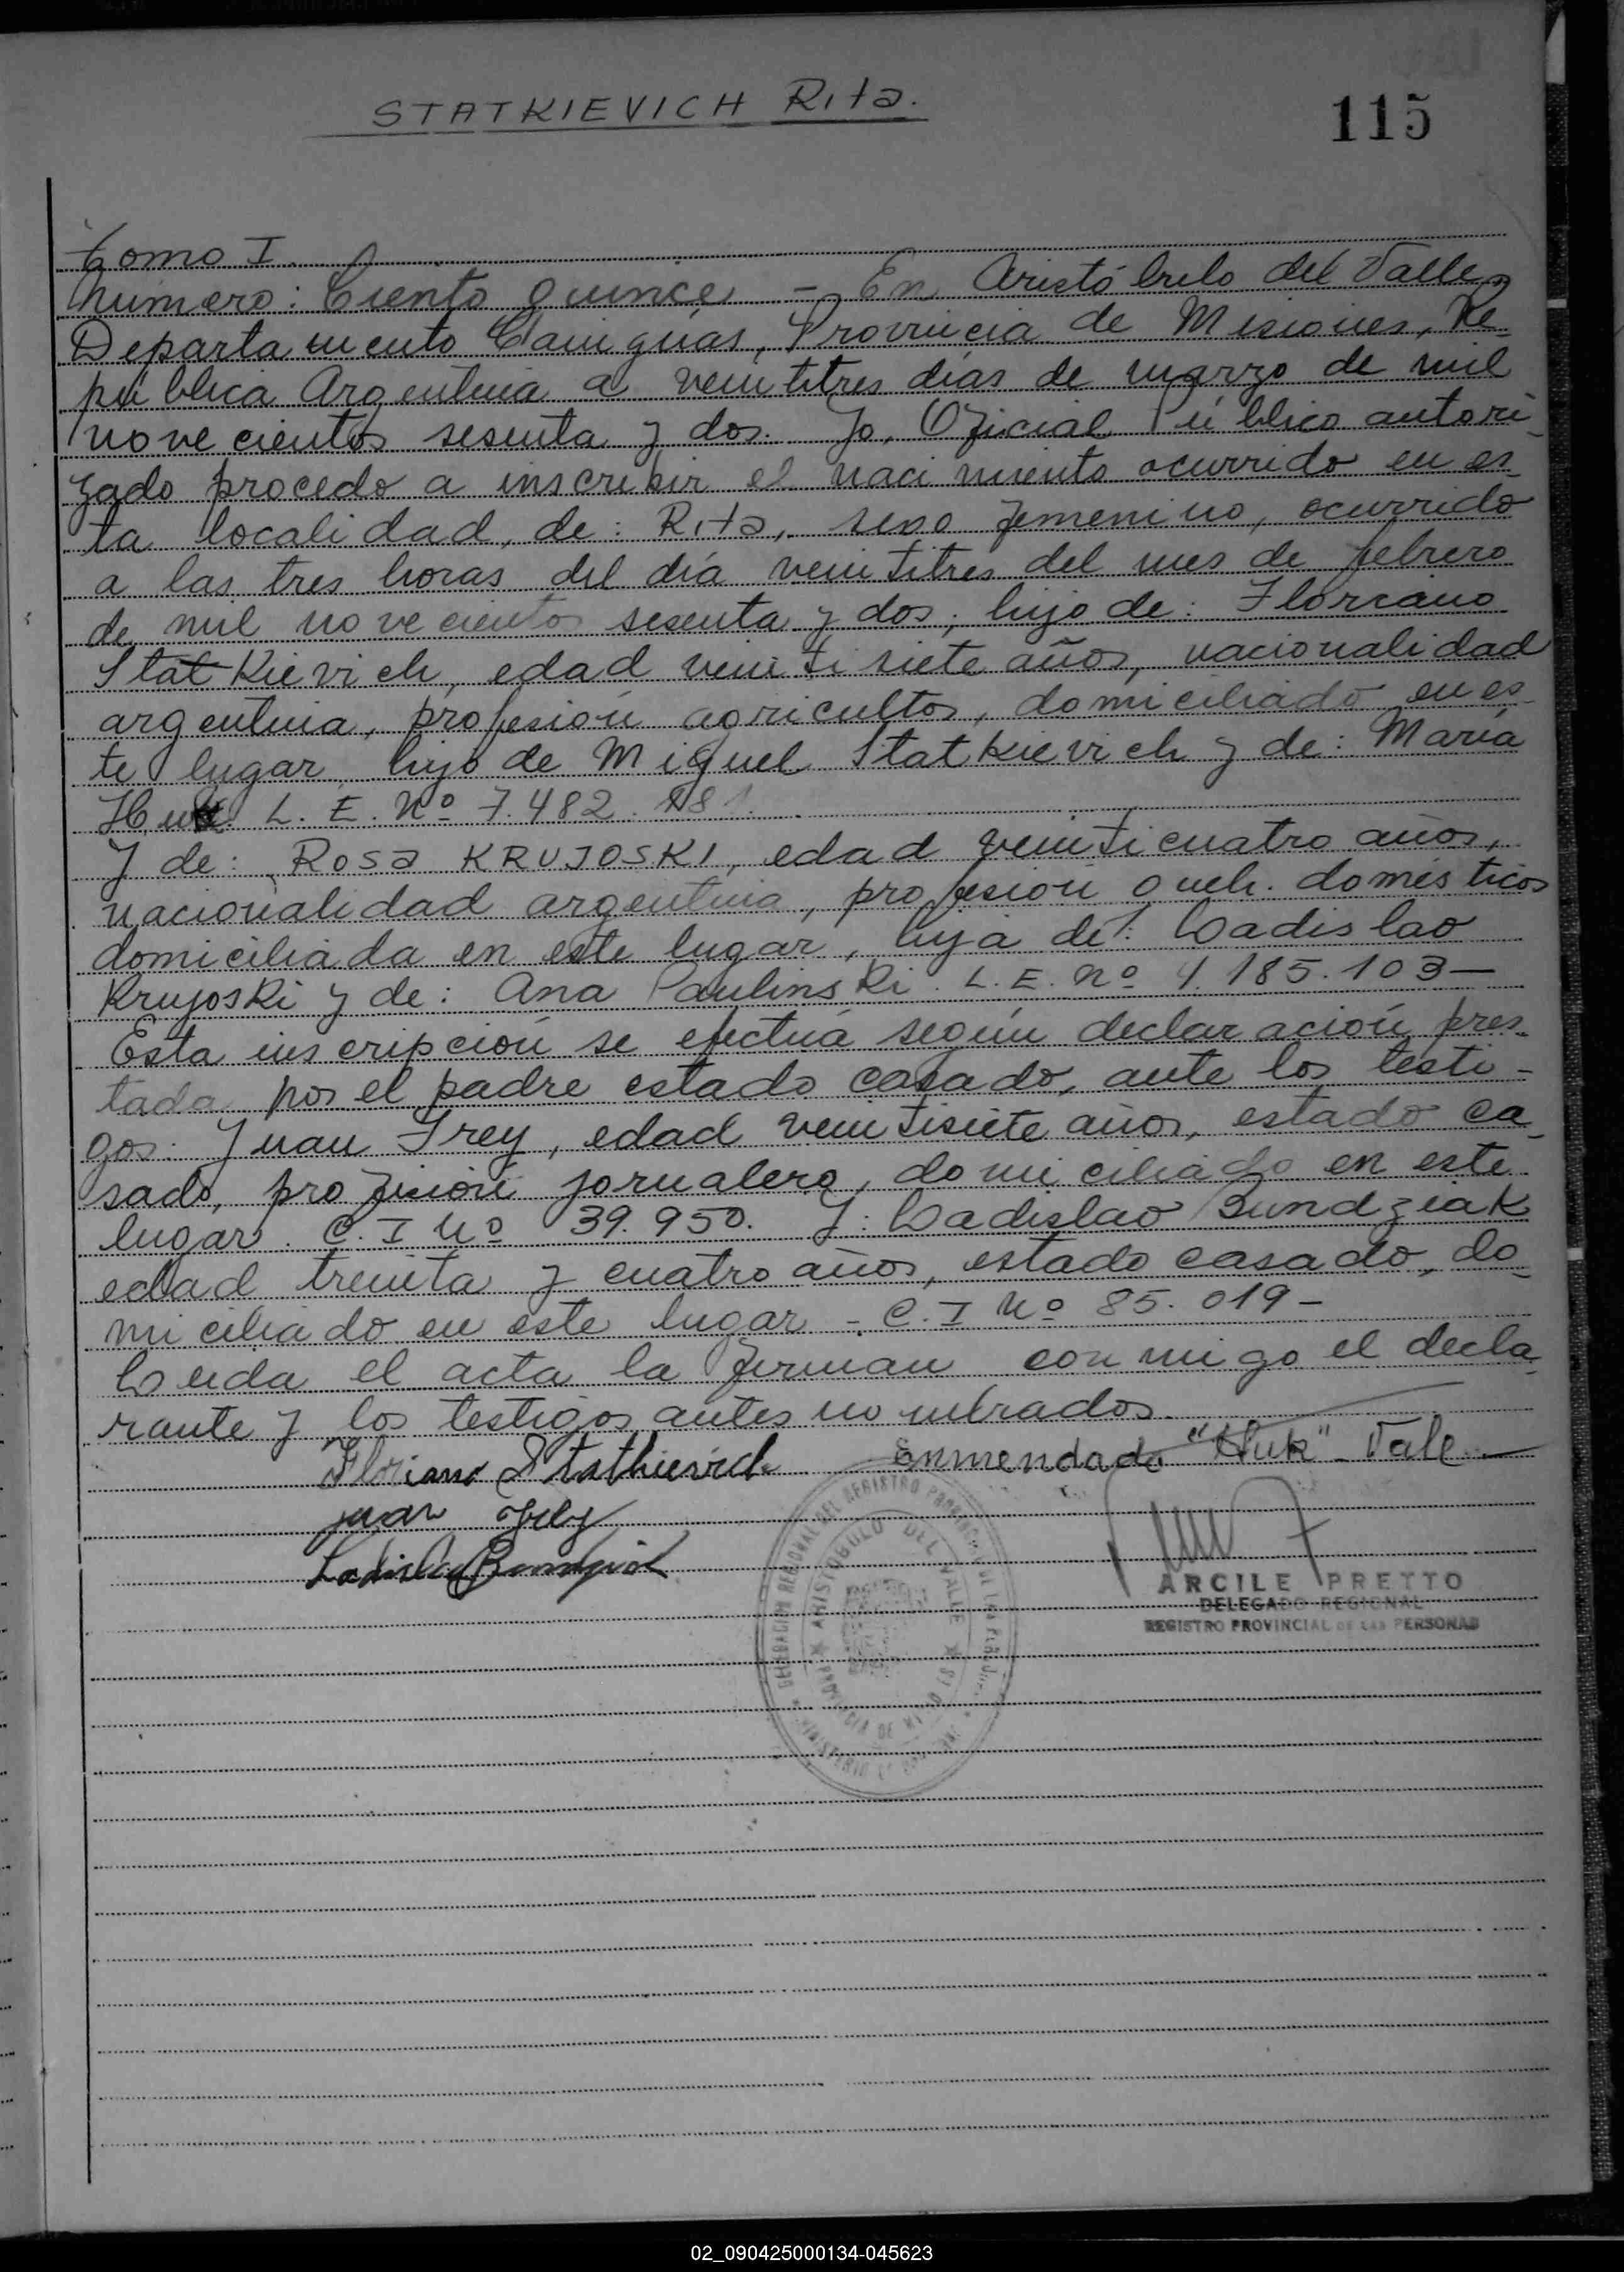 STATKIEVICH Rita.
115
Tomo I.
Número: Ciento quince - En Aristóbulo del Valle,
Departamento Cainguás, Provincia de Misiones, Re-
pública Argentina a veintitres días de marzo de mil
novecientos sesenta y dos. Yo, Oficial Público autori-
zado procedo a inscribir el nacimiento ocurrido en es-
ta localidad, de: Rita, sexo femenino, ocurrido
a las tres horas del día veintitres del mes de febrero
de mil novecientos sesenta y dos; hijo de: Floriano
Statkievich, edad veintisiete años, nacionalidad
argentina, profesión agricultor, domiciliado en es-
te lugar, hijo de Miguel Statkievich y de: María
Huk. L. E. Nº 7.482.
Y de: Rosa KRUJOSKI, edad veinticuatro años,
nacionalidad argentina, profesión queh. domésticos
domiciliada en este lugar, hija de: Ladislao
Krujoski y de: Ana Paulinski. L. E. nº 4.185.103-
Esta inscripción se efectúa según declaración pres-
tada por el padre estado casado, ante los testi-
gos: Juan Frey, edad veintisiete años, estado ca-
sado, profesión jornalero, domiciliado en este
lugar. C. I Nº 39.950. Y: Ladislao Bundziak
edad treinta y cuatro años, estado casado, do-
miciliado en este lugar - C. I Nº 85.019-
Leida el acta la firman conmigo el decla-
rante y los testigos antes nombrados.
Floriano Statkievich Enmendado "Huk" - Vale
Juan Frey
Ladislao Bundziak
ARCILE PRETTO
DELEGADO REGIONAL
REGISTRO PROVINCIAL DE LAS PERSONAS
DELEGACION REGIONAL DEL REGISTRO PROVINCIAL DE LAS PERSONAS
ARISTOBULO DEL VALLE
02_090425000134-045623